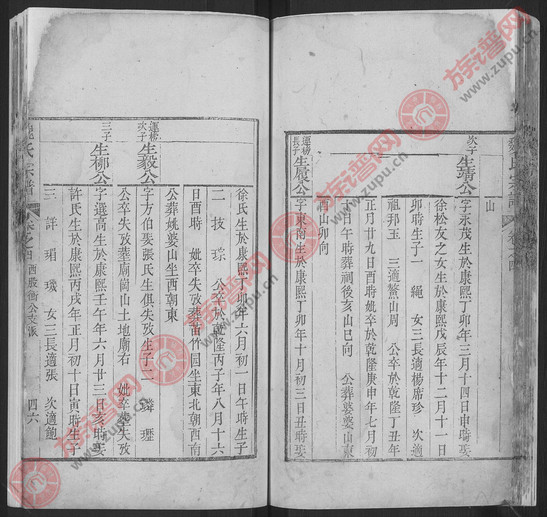 山
次子
生靖公
字永茂生於康熙丁卯年三月十四日申時娶
徐松友之女生於康熙戊辰年十二月十一日
卯時生子一 繩 女三長適楊席珍 次適
祖邦玉 三適鰲山周 公卒於乾隆丁丑年
正月廿九日酉時妣卒於乾隆庚申年七月初
丁酉午時葬祠後亥山巳向 公葬婆婆山東
酉山卯向
長子
生展公
字東南生於康熙丁卯年十月初三日丑時娶
徐氏生於康熙丁卯年六月初一日午時生子
二 技 琮 公卒於乾隆丙子年八月十六
日酉時 妣卒失攷葬苗竹园坐東北朝西南
公葬姚婆山坐西朝東
次子
生毅公
字方伯娶張氏生俱失攷生子二 麟 瓑
公卒失攷葬廟崗山土地廟右 妣卒葬失攷
三子
生柳公
字選高生於康熙壬午年六月廿三日亥時娶
許氏生於康熙丙戌年正月初十日寅時生子
三 詳 琄 璣 女三長適張 次適鮑
氏宗譜
卷之四
西殷衝公支派
四六
族谱网
www.zupu.cn
族谱网
www.zupu.cn